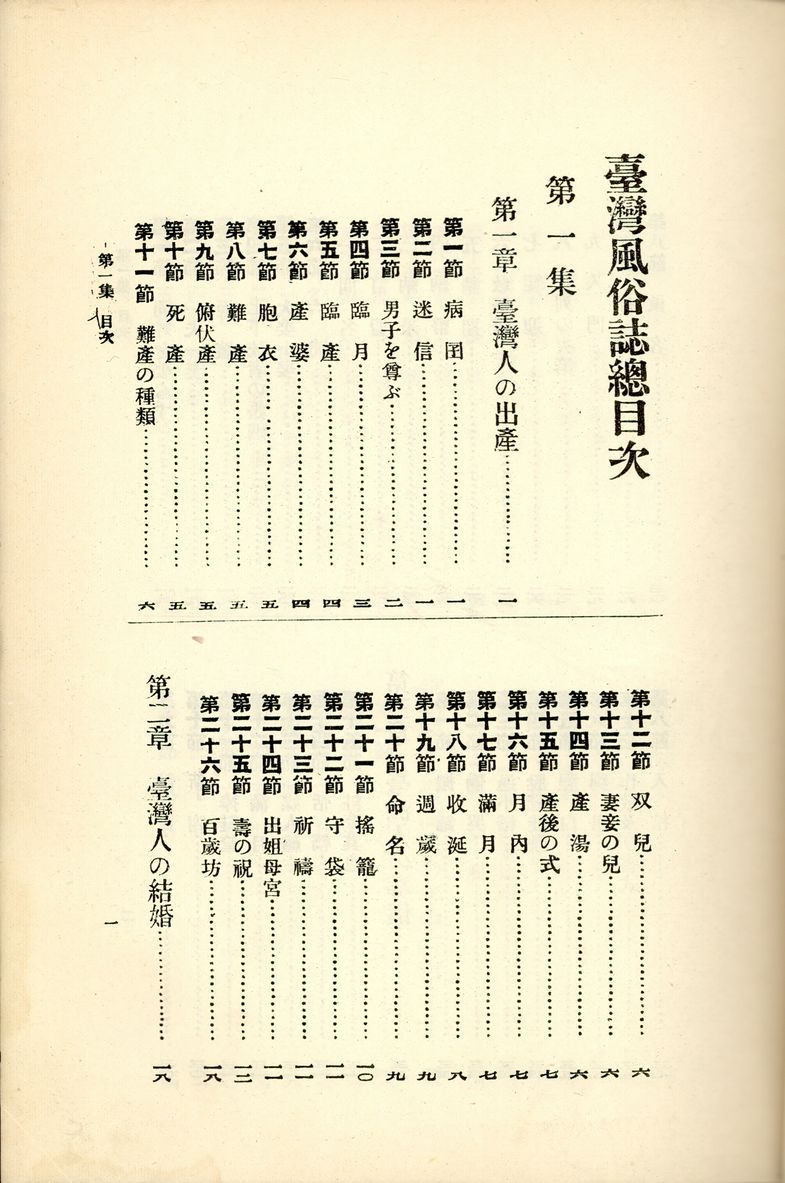 臺灣風俗誌總目次
第一集
第一章 臺灣人の出產……一
第一節 病囝……一
第二節 迷信……一
第三節 男子を尊ぶ……二
第四節 臨月……三
第五節 臨產……四
第六節 產婆……四
第七節 胞衣……五
第八節 難產……五
第九節 俯伏產……五
第十節 死產……五
第十一節 難產の種類……六
第十二節 双兒……六
第十三節 妻妾の兒……六
第十四節 產湯……六
第十五節 產後の式……七
第十六節 月內……七
第十七節 滿月……七
第十八節 收涎……八
第十九節 週歲……九
第二十節 命名……九
第二十一節 搖籠……一〇
第二十二節 守袋……一一
第二十三節 祈禱……一一
第二十四節 出姐母宮……一一
第二十五節 壽の祝……一三
第二十六節 百歲坊……一八
第二章 臺灣人の結婚……一八
第一集 目次
一